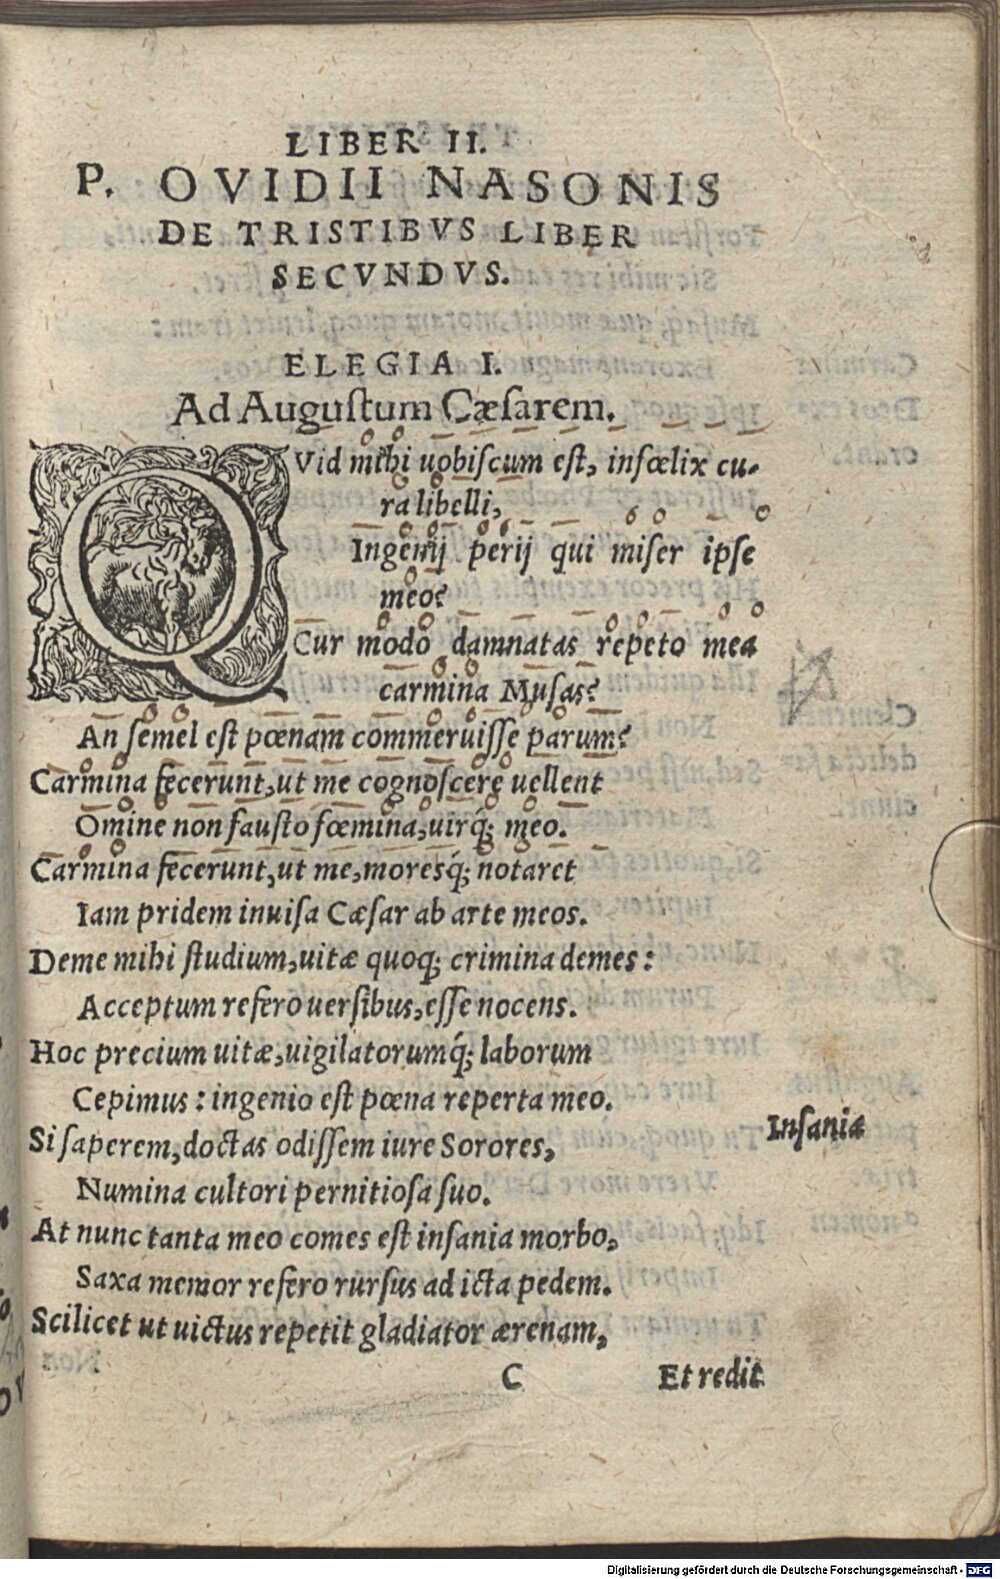 LIBER II.
P. OVIDII NASONIS
DE TRISTIBVS LIBER
SECVNDVS.
ELEGIA I.
Ad Augustum Cæsarem.
QVid mihi uobiscum est, infœlix cu-
ra libelli,
Ingenij perij qui miser ipse
meo?
Cur modo damnatas repeto mea
carmina Musas?
An semel est pœnam commeruisse parum?
Carmina fecerunt, ut me cognoscere uellent
Omine non fausto fœmina, uirq́; meo.
Carmina fecerunt, ut me, moresq́; notaret
Iam pridem inuisa Cæsar ab arte meos.
Deme mihi studium, uitæ quoq; crimina demes:
Acceptum refero uersibus, esse nocens.
Hoc precium uitæ, uigilatorumq́; laborum
Cepimus: ingenio est pœna reperta meo.
Si saperem, doctas odissem iure Sorores,
Insania
Numina cultori pernitiosa suo.
At nunc tanta meo comes est insania morbo,
Saxa memor refero rursus ad icta pedem.
Scilicet ut uictus repetit gladiator ærenam,
C
Et redit
Digitalisierung gefördert durch die Deutsche Forschungsgemeinschaft - DFG